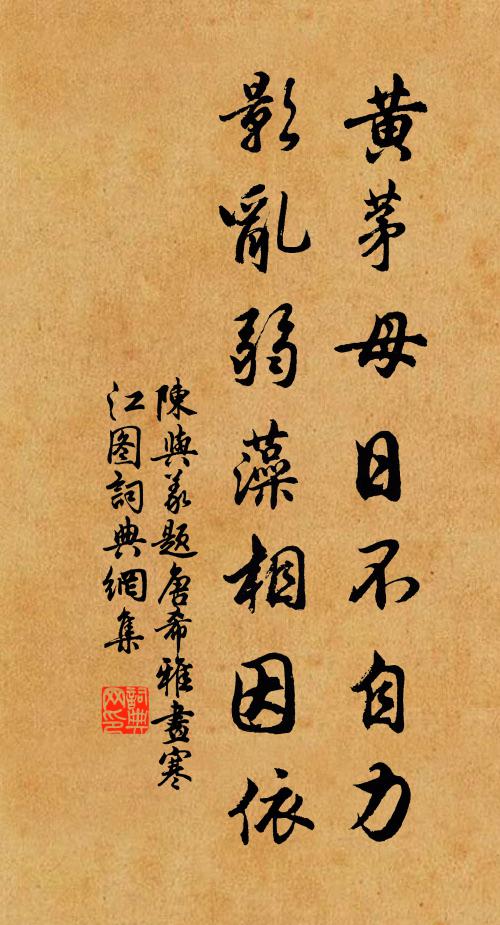 黄茅母日不自力
影亂弱藻相因依
陳與義題唐希雅畫寒
江图詞典網集
詞典
网印